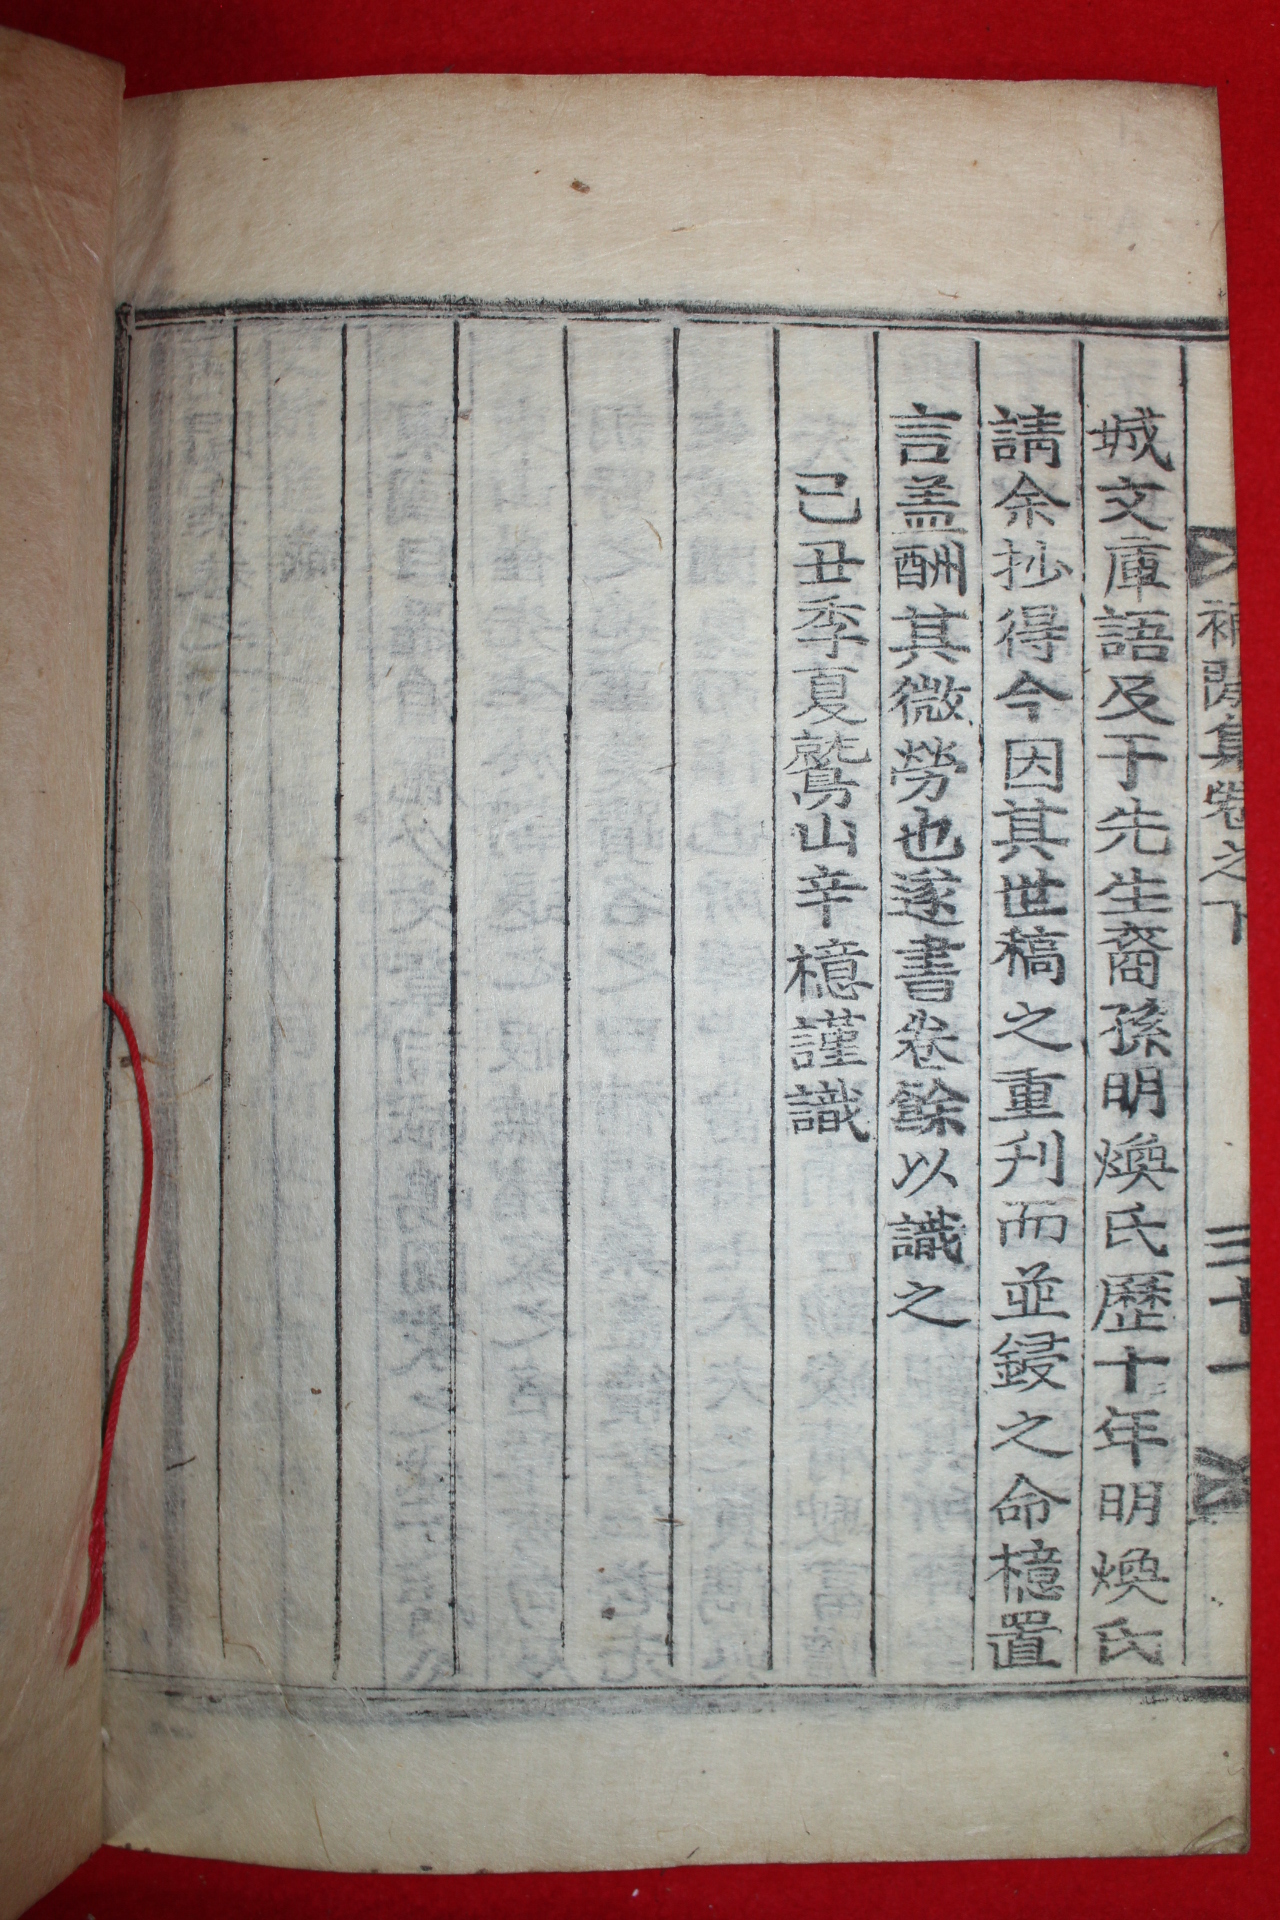 補閑集卷之下
三十一
城文庫語及于先生裔孫明煥氏歷十年明煥氏
請余抄得今因其世稿之重刋而並鋟之命檍置
言盖酬其微勞也遂書卷餘以識之
己丑季夏鷲山辛檍謹識